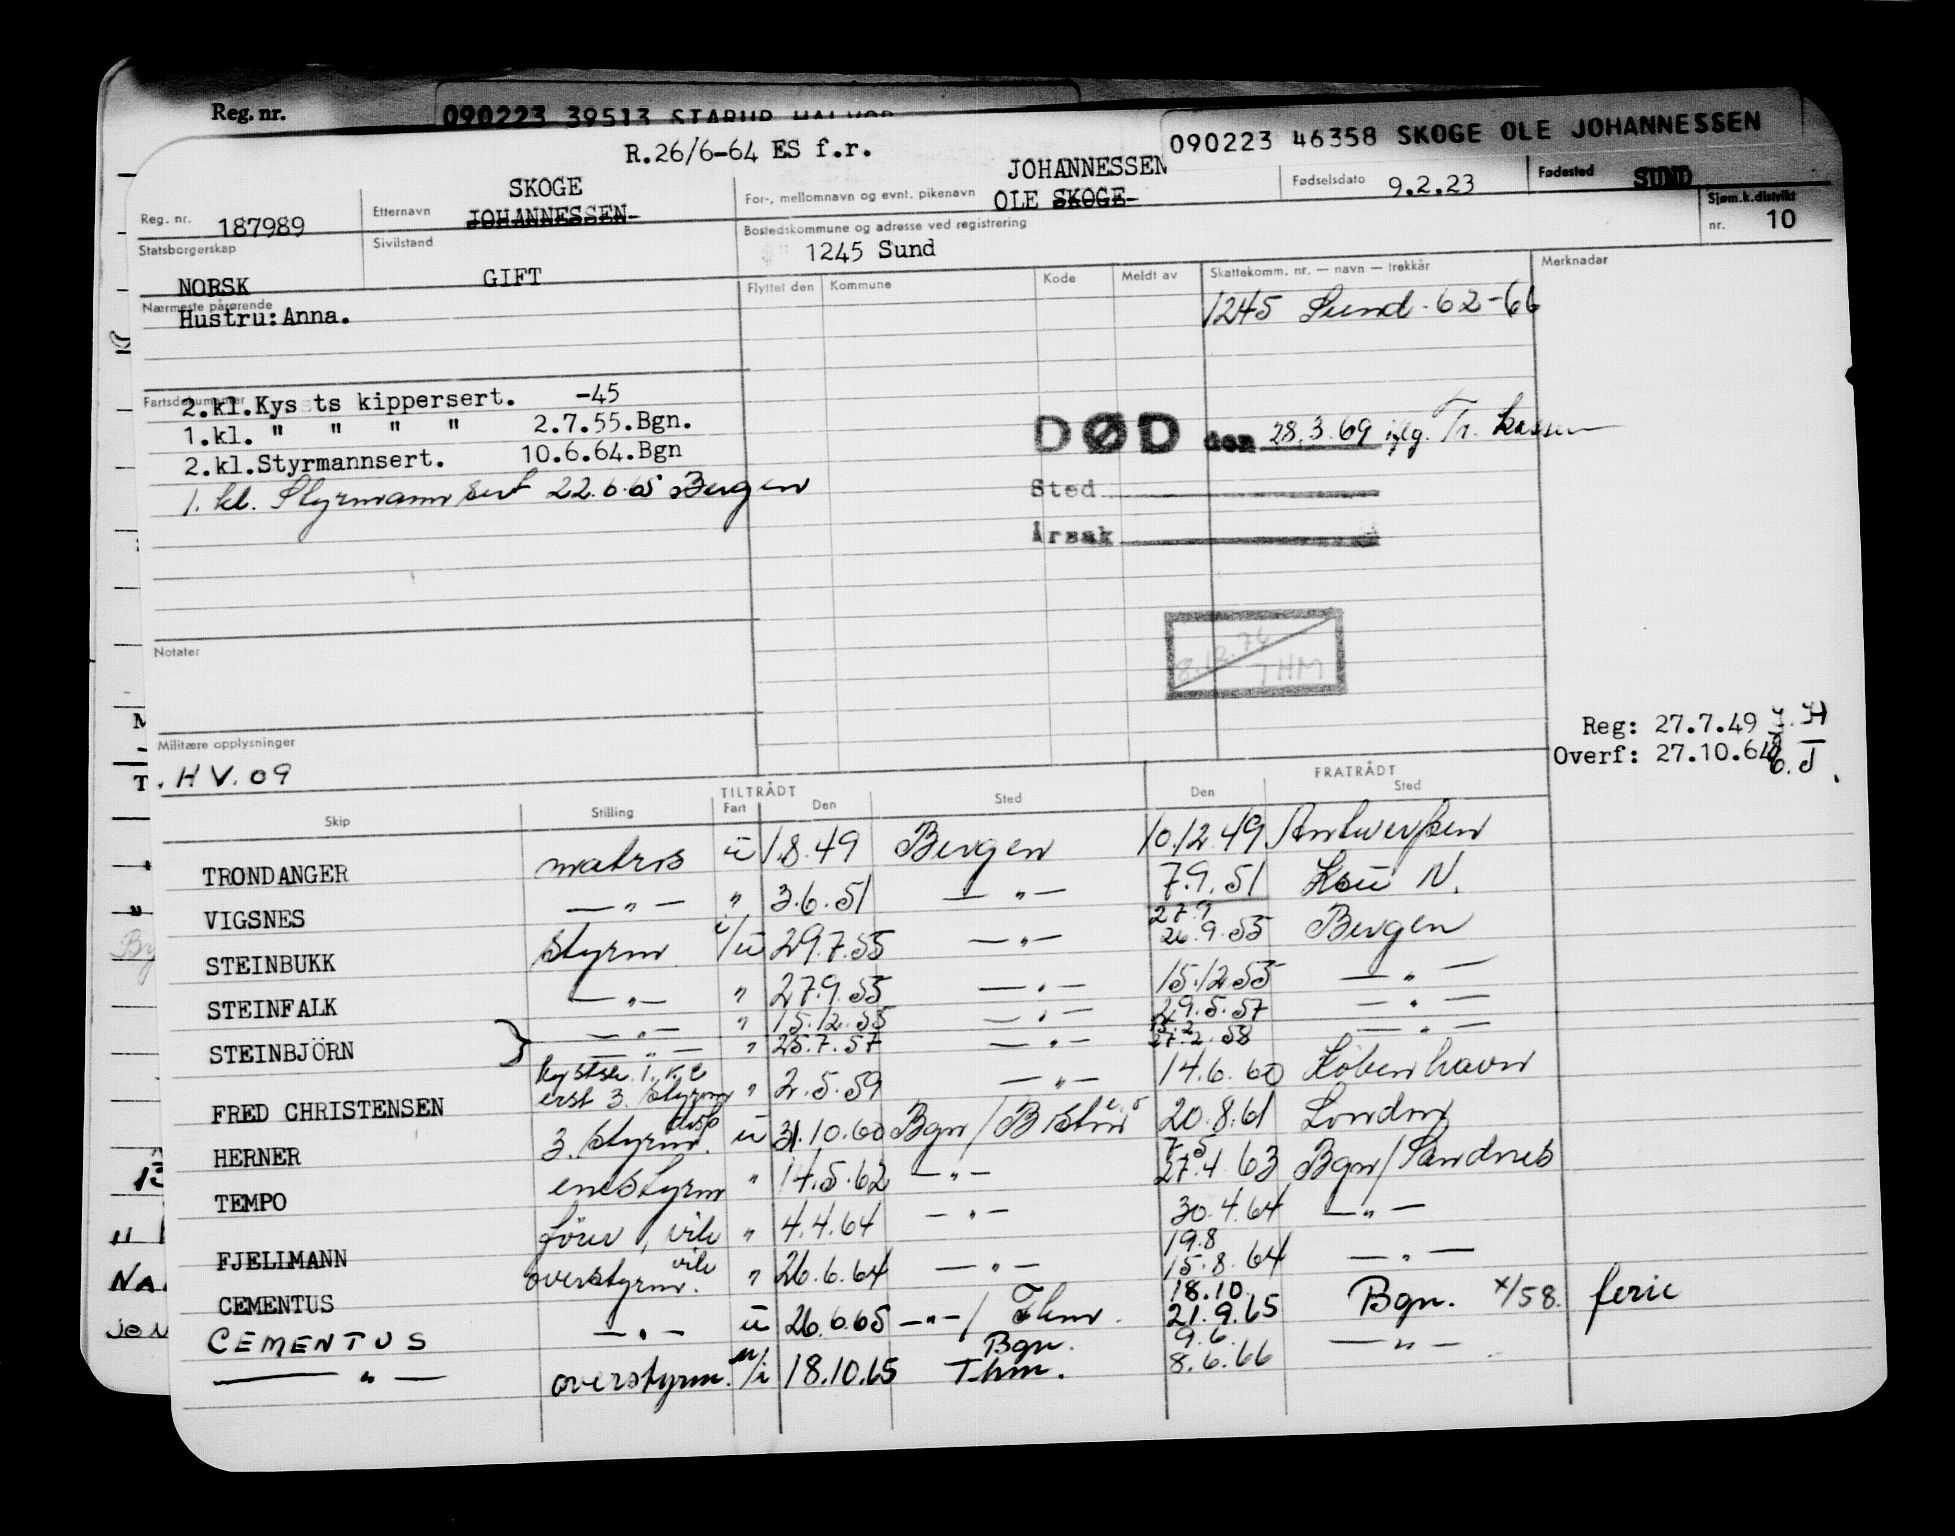 Reg. nr.
090223 39513 STARUP HALVOR
090223 46358 SKOGE OLE JOHANNESSEN
R.26/6-64 ES f.r.
Reg. nr. 187989
Etternavn SKOGE JOHANNESSEN
For-, mellomnavn og evnt. pikenavn JOHANNESSEN OLE SKOGE
Fødselsdato 9.2.23
Fødested SUND
Statsborgerskap NORSK
Sivilstand GIFT
Bostedskommune og adresse ved registrering 1245 Sund
Sjøm.k.distrikt nr. 10
Nærmeste pårørende
Hustru:Anna.
Flyttet den Kommune Kode Meldt av Skattekomm. nr. — navn — trekkår Merknader
1245 Sund - 62-66
Fartsdokumenter
2.kl.Kys ts kippersert. -45
1.kl. " " " " 2.7.55.Bgn.
2.kl.Styrmannsert. 10.6.64.Bgn
1. kl. Styrmann sert 22.6.65 Bergen
DØD den 28.3.69 iflg. Tr. kassen
Sted
Årsak
8.12.76 THM
Notater
Reg: 27.7.49
Overf: 27.10.64
Militære opplysninger
. HV. 09
TILTRÅDT FRATRÅDT
Skip Stilling Fart Den Sted Den Sted
TRONDANGER matros u 1.8.49 Bergen 10.12.49 Antwerpen
VIGSNES — " — " 3.6.51 — " — 7.9.51 N.
STEINBUKK styrm i/u 29.7.55 — " — 27.9 26.9.55 Bergen
STEINFALK — " — " 27.9.55 — " — 15.12.55 — " —
STEINBJÖRN — " — " 15.12.55 — " — 29.5.57 — " —
— " — " 25.7.57 — " — 15.2 27.2.58 — " —
FRED CHRISTENSEN erst 3. styrm " 2.5.59 — " — 14.6.60 København
HERNER 3. styrm. disp u 31.10.60 Bgn/ 20.8.61 London
TEMPO enestyrm " 14.5.62 — " — 7.5 27.4.63 Bgn/Sandnes
FJELLMANN förer, vik " 4.4.64 — " — 30.4.64 — " —
CEMENTUS overstyrm. vik " 26.6.64 — " — 19.8 15.8.64 — " —
CEMENTUS — " — u 26.6.65 — " — / Thm. 18.10 21.9.65 Bgn. x/58. ferie
— " — overstyrm. u/i 18.10.65 Bgn. Thm. 9.6. 8.6.66 — " —